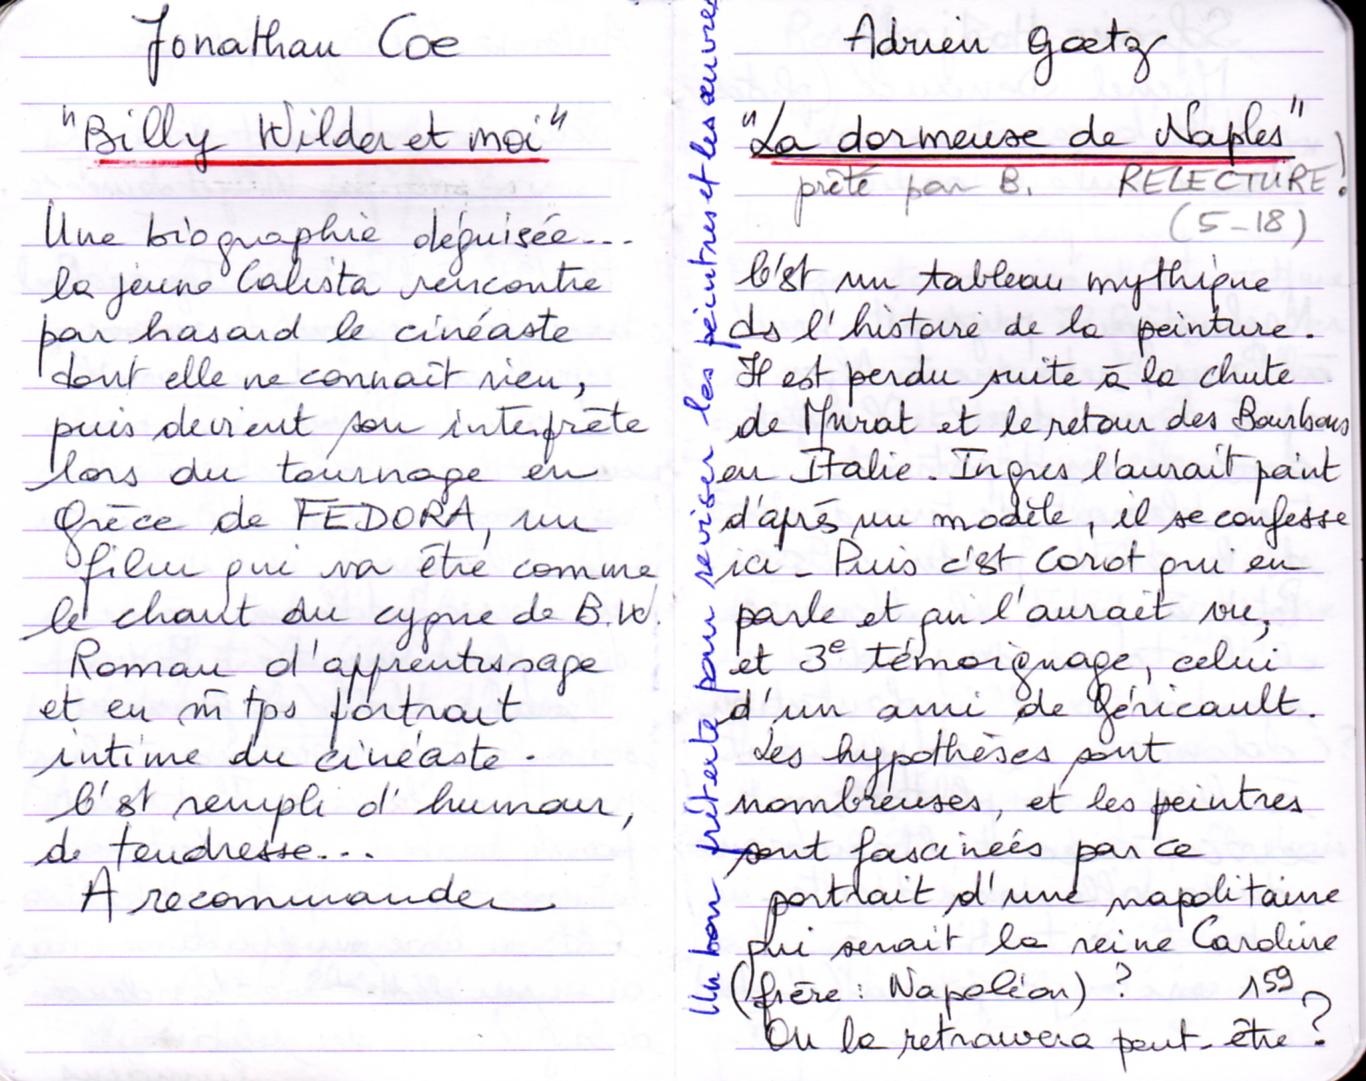 Jonathan Coe
"Billy Wilder et moi"
Une biographie déguisée...
la jeune Calista rencontre
par hasard le cinéaste
dont elle ne connaît rien,
puis devient son interprète
lors du tournage en
Grèce de FEDORA, un
film qui va être comme
le chant du cygne de B.W.
Roman d'apprentissage
et en m̄ tps portrait
intime du cinéaste.
C'est rempli d'humour,
de tendresse...
A recommander
Un bon prétexte pour réviser les peintres et les œuvres
Adrien Goetz
"La dormeuse de Naples"
prêté par B. RELECTURE!
(5-18)
C'est un tableau mythique
ds l'histoire de la peinture.
Il est perdu suite à la chute
de Murat et le retour des Bourbons
en Italie. Ingres l'aurait peint
d'après un modèle, il se confesse
ici. Puis c'est Corot qui en
parle et qui l'aurait vu,
et 3e témoignage, celui
d'un ami de Géricault.
Les hypothèses sont
nombreuses, et les peintres
sont fascinés par ce
portrait d'une napolitaine
qui serait la reine Caroline
(frère : Napoléon) ? 159
On la retrouvera peut-être ?